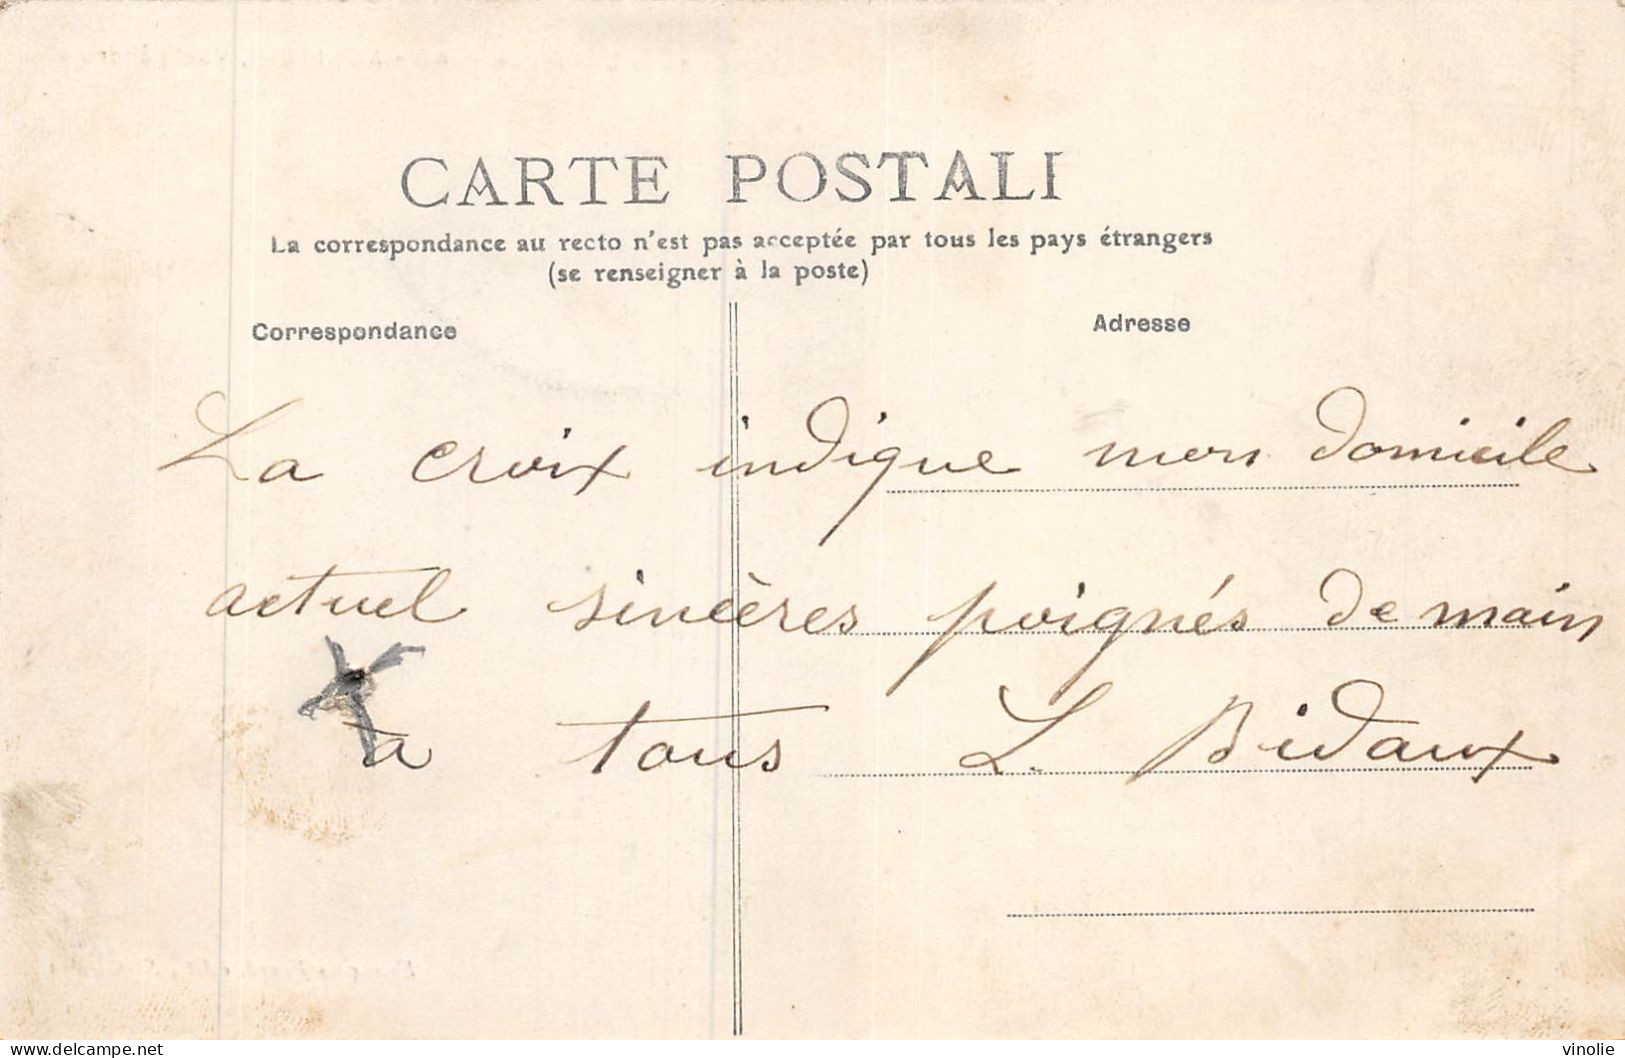 CARTE POSTALI
La correspondance au recto n'est pas acceptée par tous les pays étrangers
(se renseigner à la poste)
Correspondance
Adresse
La croix indique mon domicile
actuel sincères poignés de main
a tous L. Bidaux
www.delcampe.net
vinolie